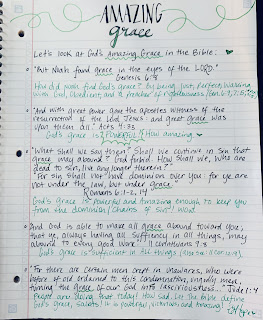 AMAZING
grace
Let's look at God's Amazing Grace in the Bible.
"But Noah found grace in the eyes of the LORD."
Genesis 6:8
How did Noah find God's grace? By being just, Perfect, Walking
with God, Obedient, and a Preacher of righteousness.
"And with great power gave the apostles witness of the
resurrection of the Lord Jesus: and great grace was
upon them all." Acts 4:33
God's grace is POWERFUL! How amazing.
"What shall we say then? Shall we continue in sin that
grace may abound? God forbid. How shall we, who are
dead to sin, live any longer therein?"
"For sin shall not have dominion over you: for ye are
not under the law, but under grace."
Romans 6:1-2, 14
God's grace is powerful and amazing enough to keep you
from the dominion/chains of sin! Wow!
And God is able to make all grace abound toward you;
that ye, always having all sufficiency in all things, may
abound to every good work." II Corinthians 9:8
God's grace is sufficient in all things
"For there are certain men crept in unawares, who were
before of old ordained to this condemnation, ungodly men,
turning the grace of our God into lasciviousness..." Jude 1:4
People are doing that today! How sad. Let the Bible define
God's grace, saints! It is powerful, virtuous, and Amazing!